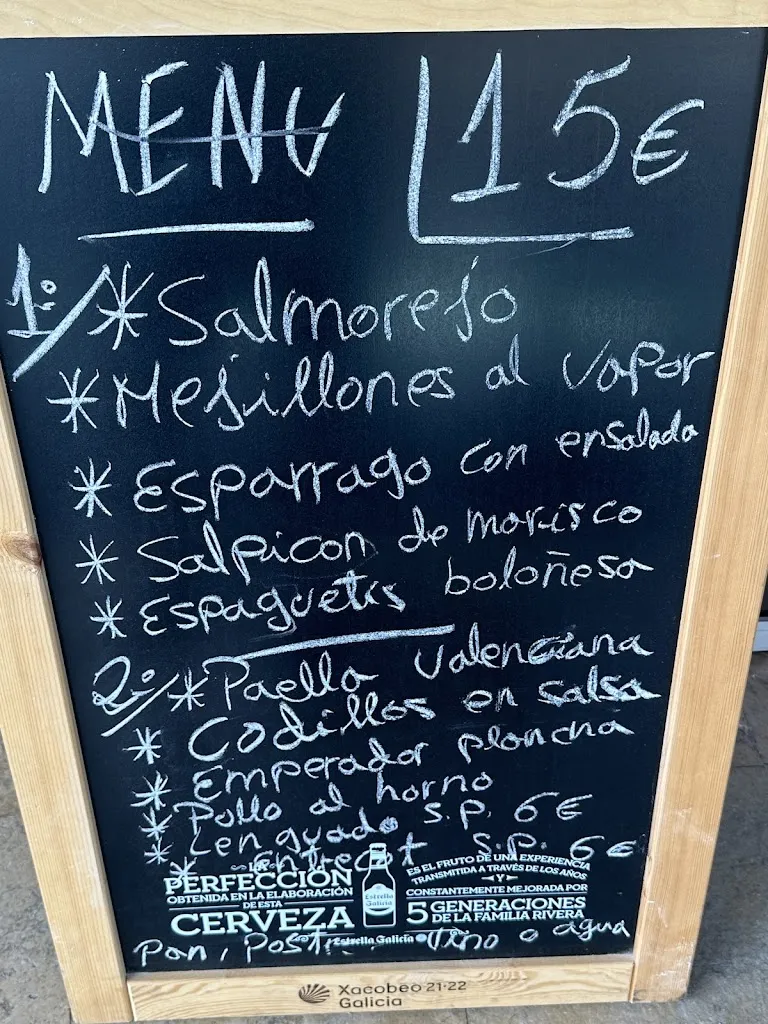 MENU 15€
1º/ * Salmorejo
* Mejillones al vapor
* Esparrago con ensalada
* Salpicon de marisco
* Espaguetis boloñesa
2º/ * Paella Valenciana
* Codillos en salsa
* Emperador plancha
* Pollo al horno
* Lenguado S.P. 6€
* Entrecot S.P. 6€
LA PERFECCIÓN
OBTENIDA EN LA ELABORACIÓN
DE ESTA
CERVEZA
Estrella Galicia
ES EL FRUTO DE UNA EXPERIENCIA
TRANSMITIDA A TRAVÉS DE LOS AÑOS
Y
CONSTANTEMENTE MEJORADA POR
5 GENERACIONES
DE LA FAMILIA RIVERA
Estrella Galicia
Pan, Post Vino o agua
Xacobeo 21·22
Galicia